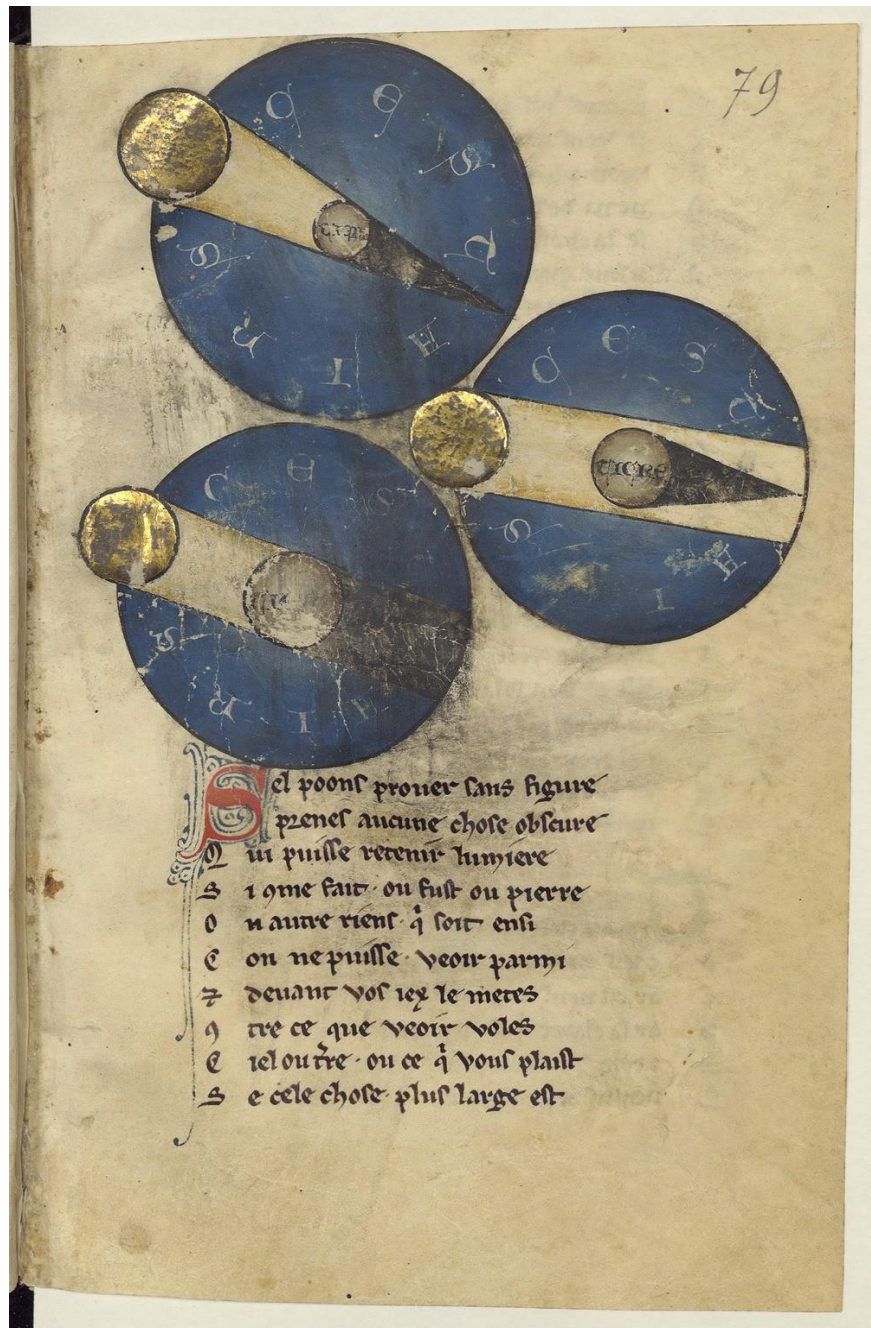 79
TERRE
TERRE
Sel poons prouer sans figure
prenes aucune chose obscure
Qui puisse retenir lumiere
Si 9me fait · ou fust ou pierre
On autre riens · q̃ soit ensi
Con ne puisse · veoir parmi
⁊ deuant vos iex le metes
9tre ce que veoir voles
Ciel ou t̃re · ou ce q̃ vous plaist
Se cele chose · plus large est